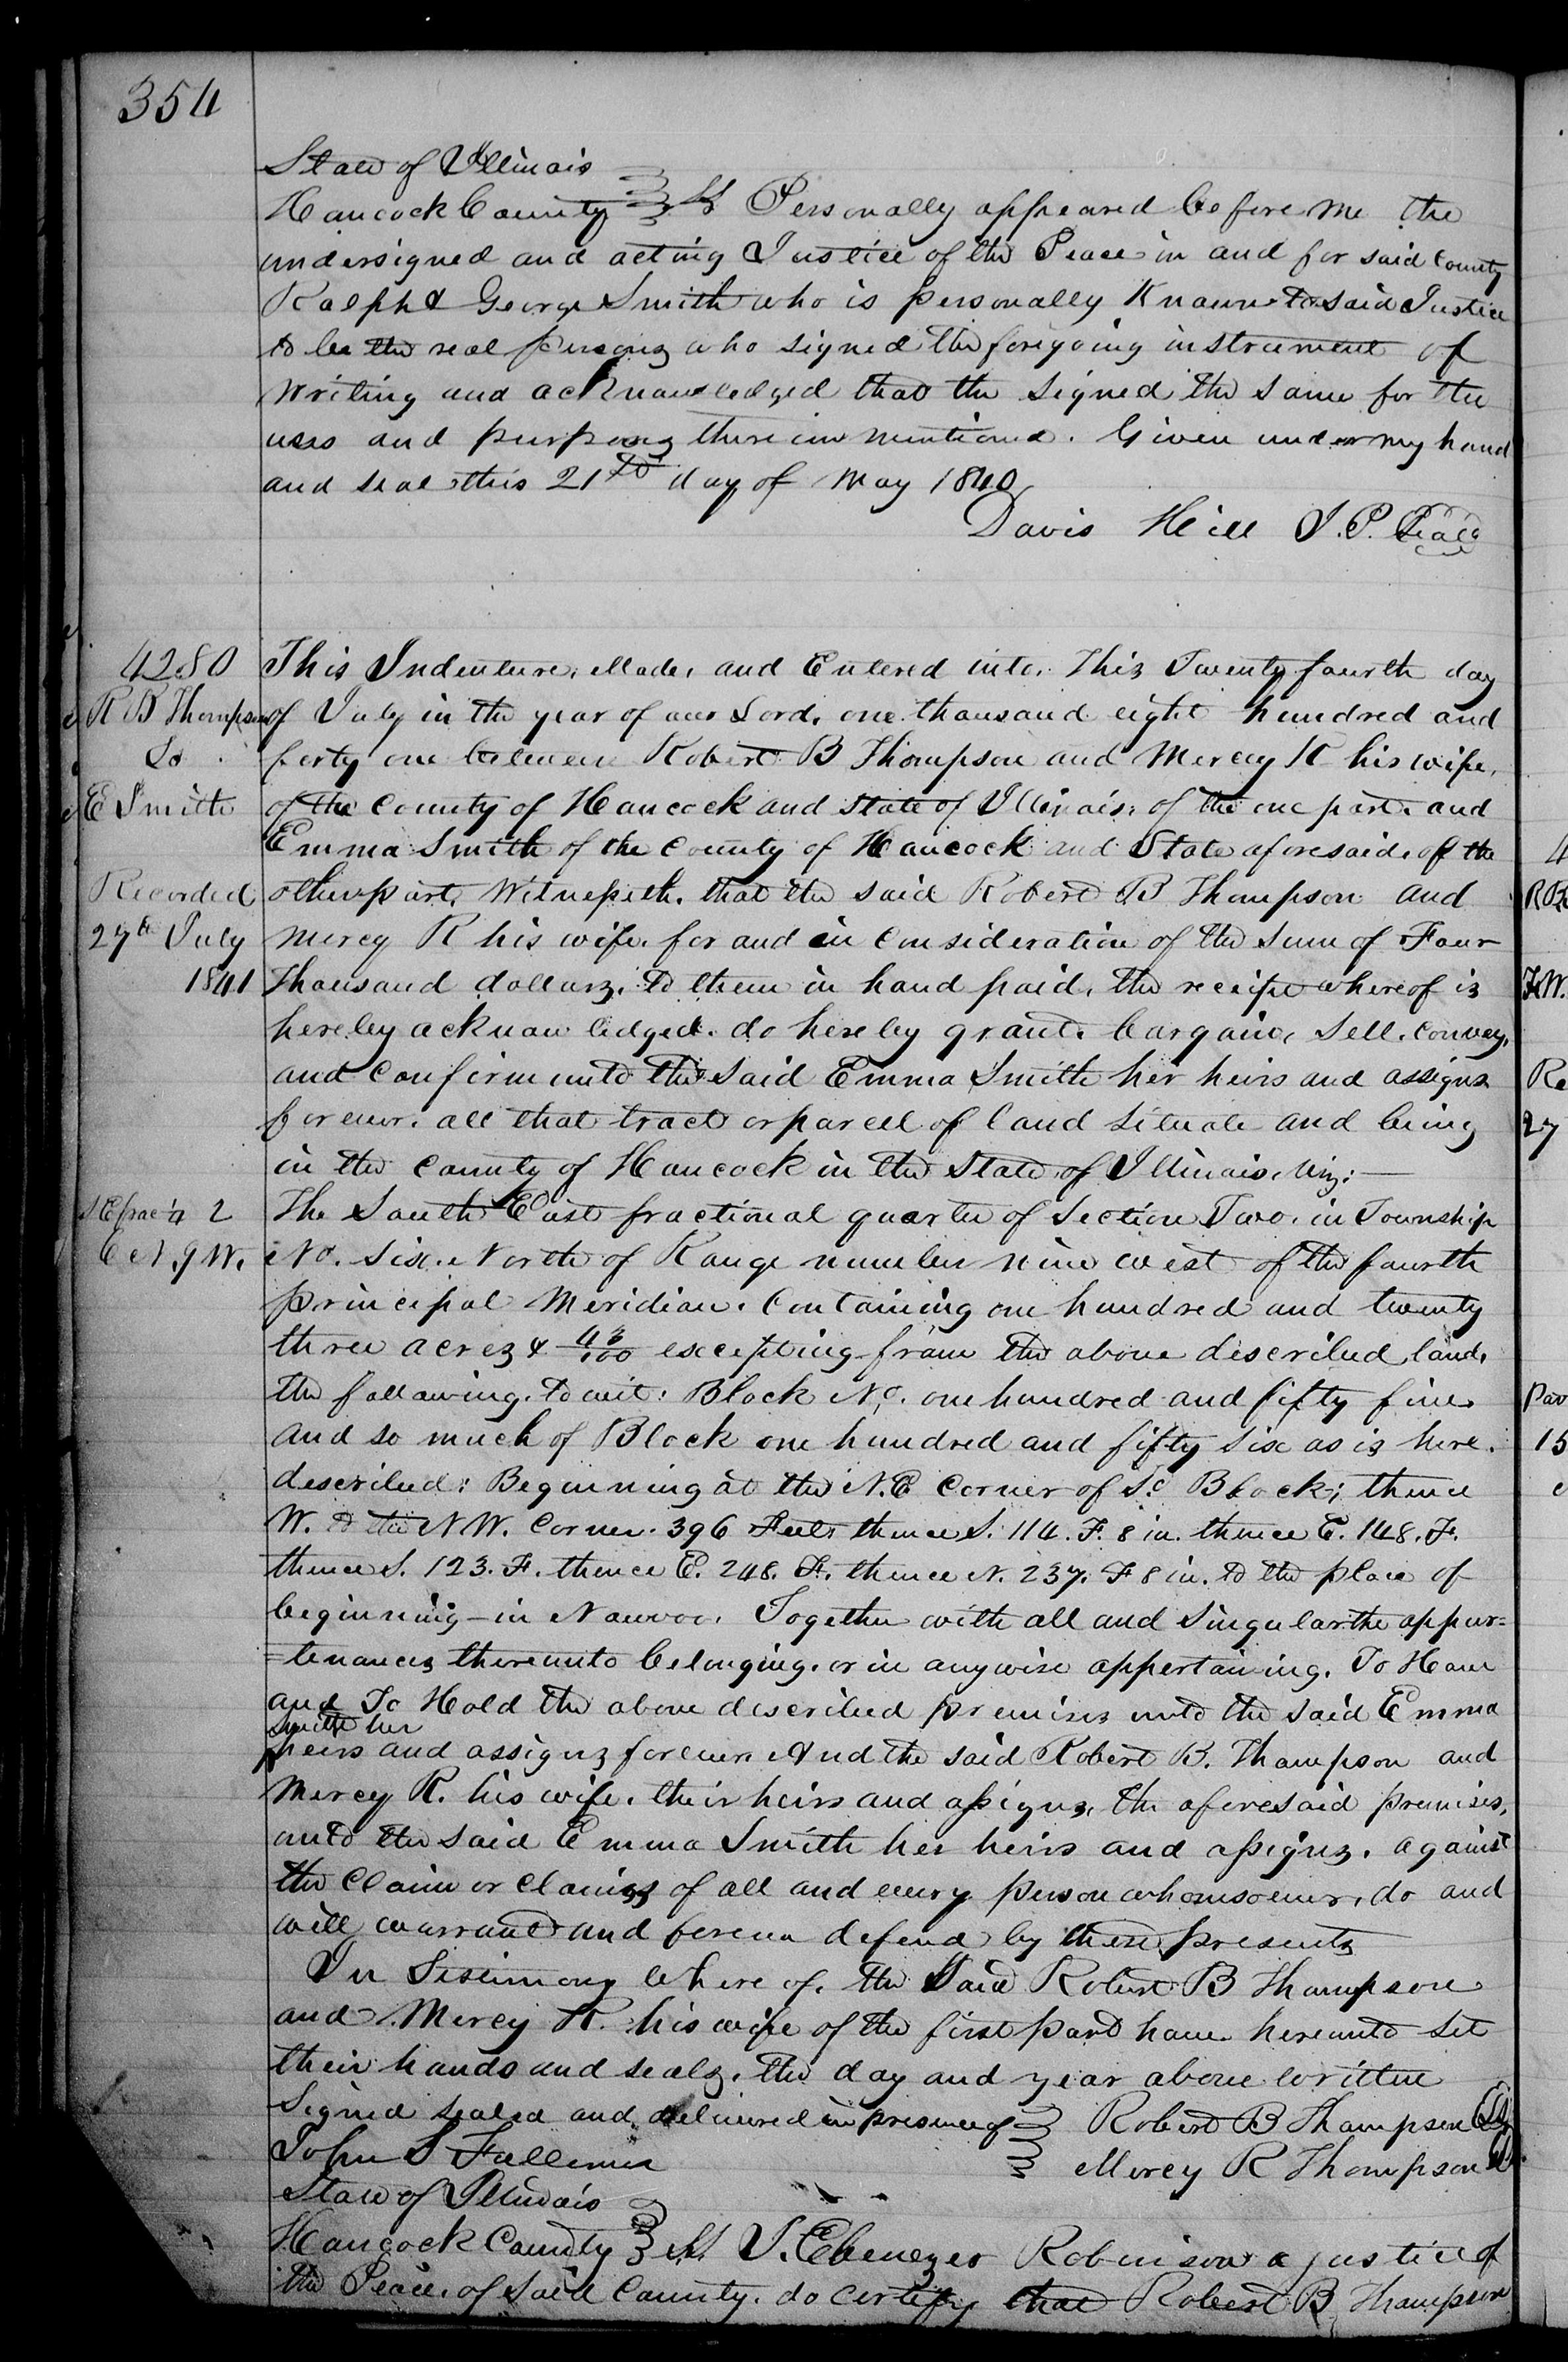 354
State of Illinois
Hancock County ss Personally appeared before me the
undersigned and acting Justice of the Peace in and for said County
Ralph & George Smith who is personally Known to said Justice
to be the real persons who signed the foregoing instrument of
writing and acknowledged that the signed the same for the
uses and purposes therein mentioned. Given under my hand
and seal this 21st day of May 1840
Davis Hill J. P. Seal
4280
R B Thompson
To
E Smith
Recorded
27th July
1841
This Indenture, Made, and Entered into. This Twenty fourth day
of July in the year of our Lord, one thousand eight hundred and
forty one between Robert B Thompson and Mercy R his wife,
of the County of Hancock and State of Illinois, of the one part, and
Emma Smith of the County of Hancock and State aforesaid, of the
other part, Witnesseth, that the said Robert B Thompson and
Mercy R his wife, for and in Consideration of the Sum of Four
Thousand dollars, to them in hand paid, the receipt whereof is
hereby acknowledged, do hereby grant, bargain, Sell, Convey,
and Confirm unto the said Emma Smith her heirs and assigns
forever, all that tract or parcel of land Situate and being
in the County of Hancock in the State of Illinois, Viz:
S E frac 1/4 2
6 N. 9 W.
The South East fractional quarter of Section Two, in Township
No. Six, North of Range number nine west of the fourth
principal Meridian. Containing one hundred and twenty
three acres & 43/100 excepting from the above described land,
the following, to wit: Block No. one hundred and fifty five
and so much of Block one hundred and fifty Six as is here
described: Beginning at the N.E Corner of Sd Block; thence
W. to the N W. Corner. 396 Feet, thence S. 114. F. 8 in. thence E. 148. F.
thence S. 123. F. thence E. 248. F. thence N. 237. F 8 in. to the place of
beginning in Nauvoo. Together with all and Singular the appur=
=tenances thereunto belonging, or in anywise appertaining. To Have
and To Hold the above described premises unto the said Emma
Smith her
heirs and assigns forever And the said Robert B. Thompson and
Mercy R. his wife, their heirs and assigns, the aforesaid premises,
unto the said Emma Smith her heirs and assigns, against
the Claim or Claims of all and every person whomsoever, do and
will warrant and forever defend by these presents
In Testimony Where of, the Said Robert B Thompson
and Mercy R. his wife of the first part have hereunto Set
their hands and seals, the day and year above written
Signed sealed and delivered in presence of Robert B Thompson
John S Fullmer Mercy R Thompson
State of Illinois
Hancock County ss I. Ebenezer Robinson a justice of
the Peace, of Said County, do certify that Robert B Thompson
4
FW.
Re
27
15